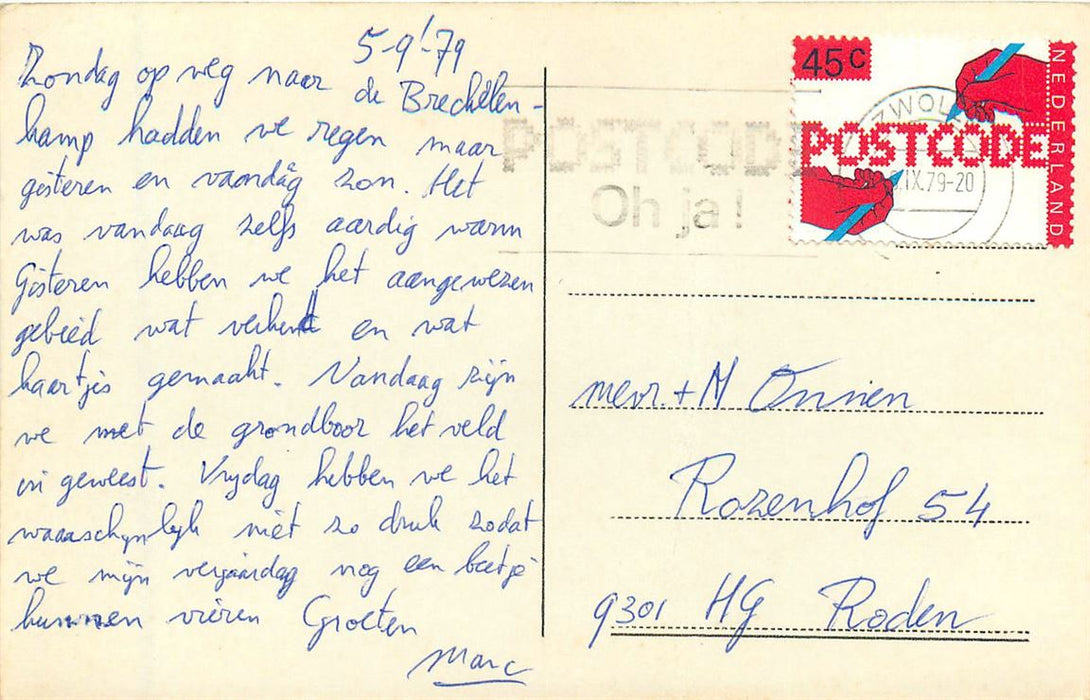 5-9-'79
Zondag op weg naar de Brechelen-
kamp hadden we regen maar
gisteren en vandaag zon. Het
was vandaag zelfs aardig warm
Gisteren hebben we het aangewezen
gebied wat verkend en wat
kaartjes gemaakt. Vandaag zijn
we met de grondboor het veld
in geweest. Vrydag hebben we het
waarschynlyk niet zo druk zodat
we mijn verjaardag nog een beetje
kunnen vieren Groeten
Marc
45c
NEDERLAND
POSTCODE
ZWOLLE
.IX.79-20
POSTCODE
Oh ja!
mevr. + M Onnen
Rozenhof 54
9301 HG Roden